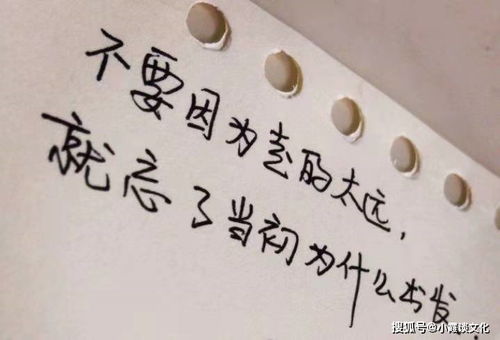 不要因为走的太远，
就忘了当初为什么出发.
搜狐号@小霞谈文化